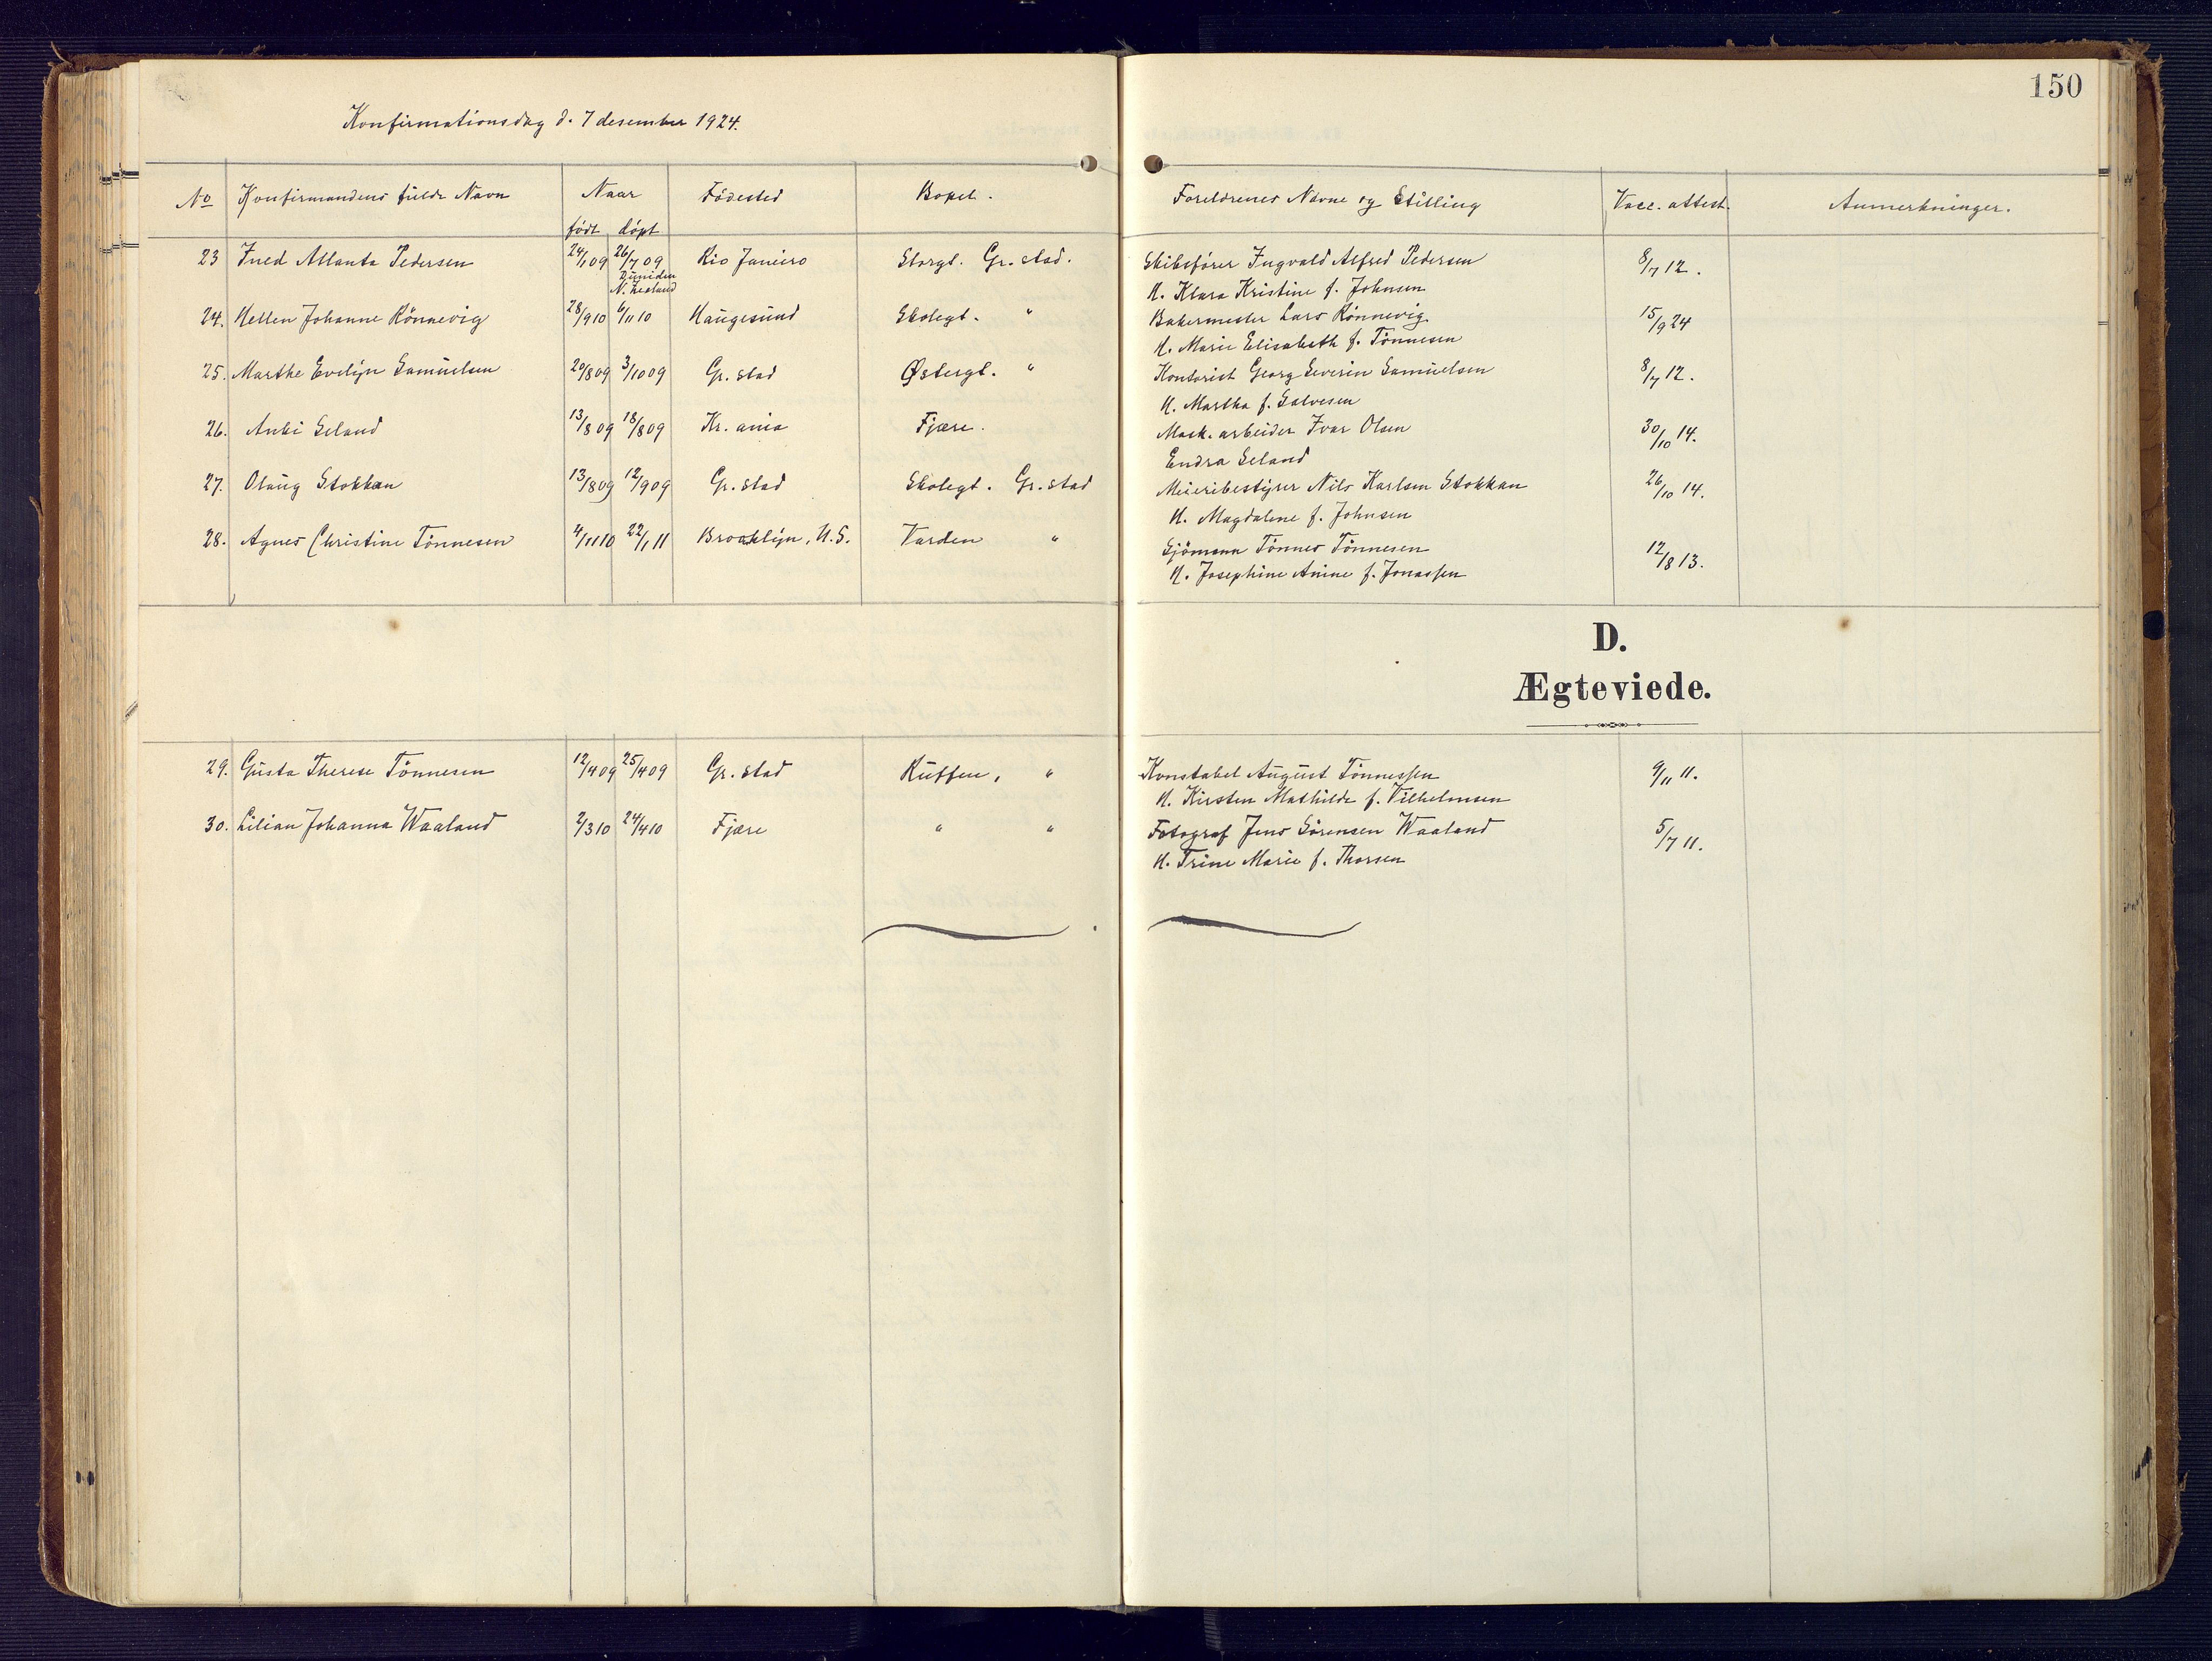 150
Konfirmationsdag d. 7 desember 1924.
No Konfirmandens fulde Navn Naar Födested Bopel. Foreldrenes Navne og Stilling Vacc. attest. Anmerkninger.
födt döpt
23 Ined Atlanta Pedersen 24/1 09 26/7 09 Rio Janeiro Storgt. Gr.stad. Skibsfører Ingvald Alfred Pedersen 8/7 12.
Duniden
N. Zealand H. Klara Kristine f. Johnsen
24. Hellen Johanne Rönnevig 28/9 10 6/11 10 Haugesund Skolegt. " Bakermester Lars Rönnevig 15/9 24
H. Marie Elisabeth f. Tönnesen
25. Marthe Evelyn Samuelsen 20/8 09 3/10 09 Gr.stad Østergt. " Kontorist Georg Severin Samuelsen 8/7 12.
H. Martha f. Salvesen
26. Anbi Seland 13/8 09 18/8 09 Kr.ania Fjære. Mask.arbeider Ivar Olsen 30/10 14.
Endra Seland
27. Olaug Stokkan 13/8 09 12/9 09 Gr.stad Skolegt. Gr.stad Meieribestyrer Nils Karlsen Stokkan 26/10 14.
H. Magdalene f. Johnsen
28. Agnes Christine Tönnesen 4/11 10 22/1 11 Brooklyn, U.S. Varden " Sjömann Tönnes Tönnesen 12/8 13.
H. Josephine Anine f. Jonassen
D.
Ægteviede.
29. Gusta Therese Tönnesen 12/4 09 25/4 09 Gr.stad Kuffen, " Konstabel August Tönnessen 9/11 11.
H. Kirsten Mathilde f. Vilhelmsen
30. Lilian Johanna Waaland 2/3 10 24/4 10 Fjære " " Fotograf Jens Sörensen Waaland 5/7 11.
H. Trine Marie f. Thorsen